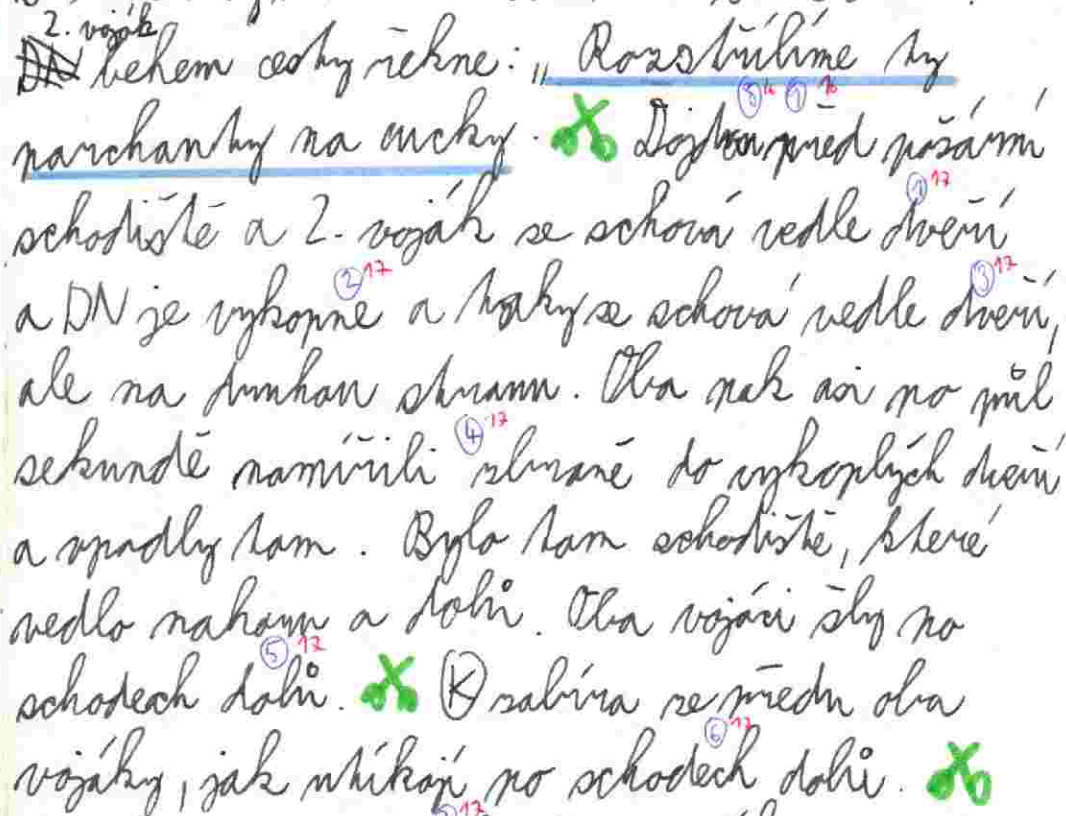 2. voják
DN během cesty řekne: „Rozstřílíme ty
8 16 9 16
parchanty na cucky. Dojdou před požární
1 17
schodiště a 2. voják se schová vedle dveří
2 17 3 17
a DN je vykopne a taky se schová vedle dveří,
ale na druhou stranu. Oba pak asi po půl
4 17
sekundě namířili zbraně do vykoplých dveří
a vpadly tam. Bylo tam schodiště, které
vedlo nahoru a dolů. Oba vojáci šly po
5 17
schodech dolů. K zabíra ze předu oba
6 17
vojáky, jak utíkají po schodech dolů.
17